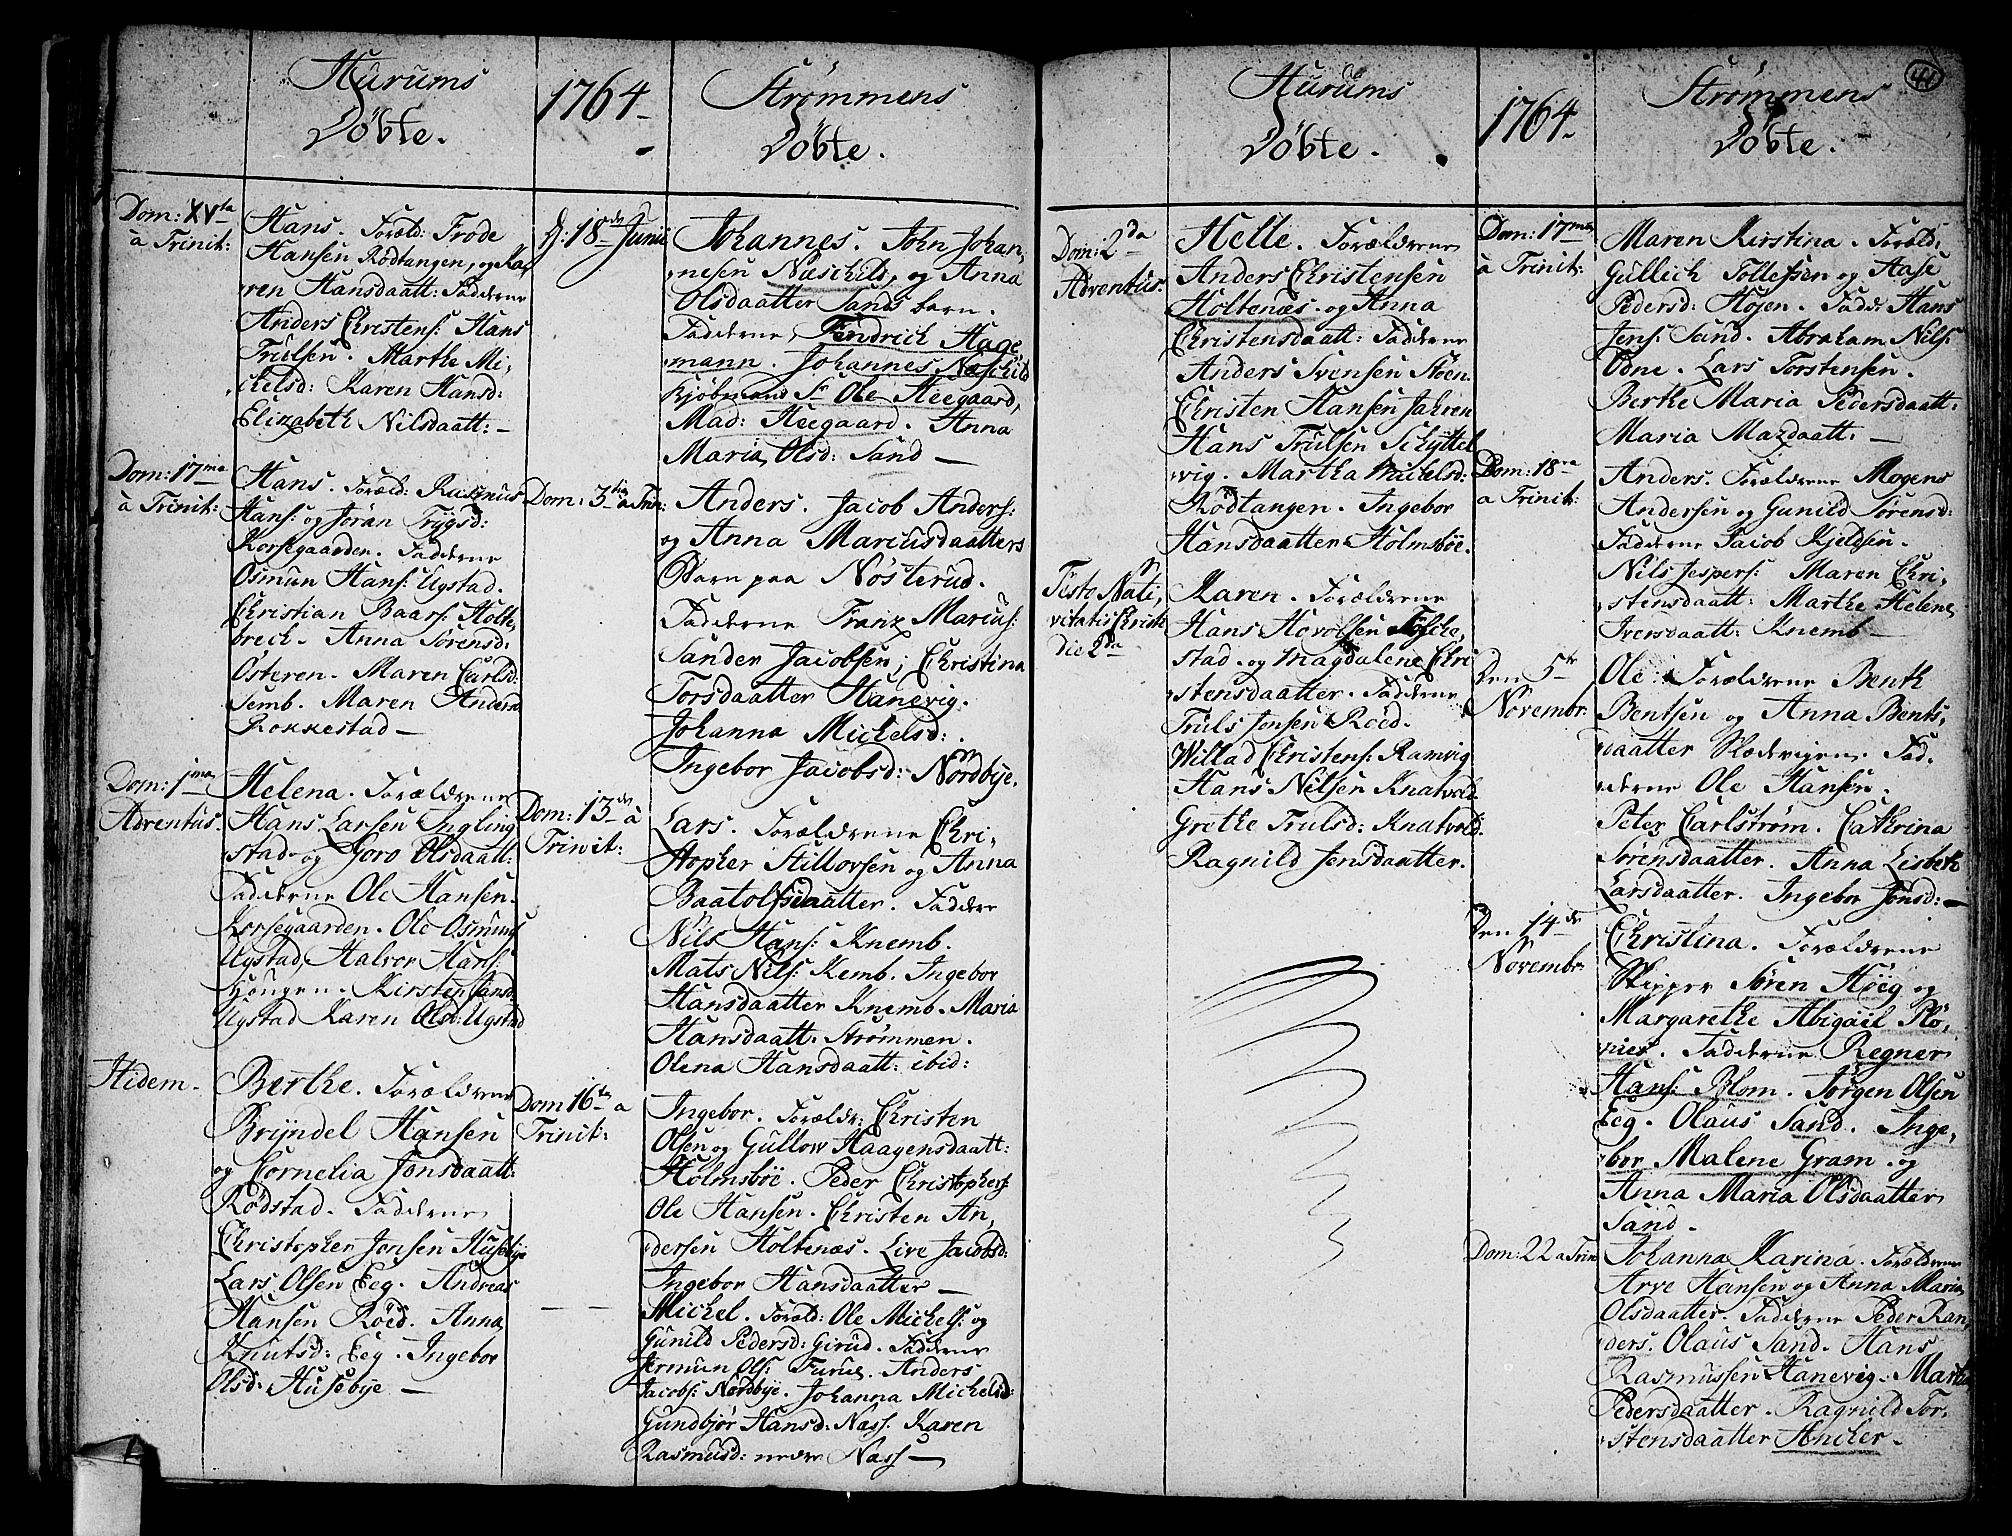 Hurums
Döbte.
Dom: XVta
à Trinit:
Hans. Foræld: Frode
Hansen Rödtangen, og Ka,
ren Hansdaatt: Fadderne
Anders Christens: Hans
Trulsen. Marthe Mi,
chelsd: Karen Hansd:
Elizabeth Nilsdaatt: —
Dom: 17ma
à Trinit:
Hans. Foræld: Rasmus
Hans: og Jöran Trÿgsd:
Korsegaarden. Fadderne
Osmun Hans: Ugstad.
Christian Baars: Holte,
breck. Anna Sörensd:
Osteren. Maren Carlsd:
Temb. Maren Andersd
Rokkestad —
Dom: 1ma
Adventus.
Helena. Forældrene
Hans Larsen Ingling
stad. og Goro Olsdaatt:
Fadderne Ole Hansen.
Korsegaarden. Ole Osmuns
Ugstad, Halvor Hans:
Houngen. Kirsten Hansd:
Ugstad Karen Olsd: Ugstad
Hidem.
Berthe. Forældrene
Brÿndel Hansen
og Cornelia Jonsdaatt:
Rödstad. Fadderne
Christopher Jonsen Husebÿe
Lars Olsen Eeg. Andreas
Hansen Röed. Anna
Knutsd: Eeg. Ingebor
Olsd: Husebÿe —
1764
Strømmens
Döbte.
D: 18de Junii
Johannes. John Johan,
nesen Næschels, og Anna
Olsdaatter Sands barn.
Fadderne, Fendrich Hage
mann. Johannes Næschild
Kjöbmand Sr Ole Heegaard,
Mad: Heegaard. Anna
Maria Olsd: Sand —
Dom: 3tia a Trin:
Anders. Jacob Anders:
og Anna Marcusdaatters
Barn paa Nösterud.
Fadderne Franz Marius:
Sander Jacobsen; Christina
Torsdaatter Hanevig.
Johanna Michelsd:
Ingebor Jacobsd: Nordbÿe.
Dom: 13de à
Trinit:
Lars. Forældrene Chri,
stopher Stillovsen og Anna
Baatolfsdaatter. Faddere
Nils Hans: Knemb.
Mats Nils: Kemb. Ingebor
Hansdaatter Knemb. Maria
Hansdaatt: Strömmen.
Olena Hansdaatt: ibid:
Dom 16ta a
Trinit:
Ingebor. Forældr: Christen
Olsen og Gullow Haagensdaatt:
Holmsböe. Peder Christophers
Ole Hansen. Christen An,
dersen Holtenæs. Live Jacobsd:
Ingebor Hansdaatter —
— —
Michel. Foræld: Ole Michels: og
Gunild Pedersd: Girud. Fadderne
Jermun Ols: Furue. Anders
Jacobs: Nordbÿe. Johanna Michelsd:
Gundbjör Hansd: Næss. Karen
Rasmusd: nedre Næss —
41
Hurums
Döbte.
Dom: 2da
Adventus.
Helle. Forældrene
Anders Christensen
Holtenæs. og Anna
Christensdaatt: Fadderne
Anders Svensen Stöen
Christen Hansen Jahren
Hans Trulsen Schÿttel
vig. Martha Michelsd:
Rödtangen. Ingebor
Hansdaatter Holmsböe.
Festo Nati,
vitatis Christi
die 2da
Karen. Forældrene
Hans Hovolsen Tofte,
stad. og Magdalene Chri
stensdaatter. Fadderne
Truls Jonsen Röed.
Willad Christens: Ramvig
Hans Nilsen Knatvold
Grethe Trulsd: Knatvold.
Ragnild Jensdaatter.
1764
Strømmens
Döbte.
Dom: 17ma
à Trinit:
Maren Kirstina. Foræld:
Gullich Tollefsen og Aase
Pedersd: Höjen. Fadd: Hans
Jens: Sand. Abraham Nils:
Odne. Lars Torstensen.
Berthe Maria Pedersdaatt:
Maria Mazdaatt: —
Dom: 18va
a Trinit:
Anders. Forældrene Mogens
Andersen og Gunild Sörensd:
Fadderne Jacob Kjeldsen.
Nils Jespers: Maren Chri,
stensdaatt: Marthe Helene
Iversdaatt: Knemb —
Den 5te
Novembr:
Ole. Forældrene Benth
Bentsen og Anna Bents,
daatter Rödvigen. Fad,
derne Ole Hansen.
Peter Carlström. Cathrina
Sörensdaatter. Anna Lisbeth
Larsdaatter. Ingebor Jonsd: —
Den 14de
Novembr:
Christina. Forældrene
Skipper Sören Höeg og
Margarethe Abigäel Plö,
nies. Fadderne Regner
Hans: Blom. Jörgen Olsen
Eeg. Olaus Sand. Inge,
bor Malene Gram. og
Anna Maria Olsdaatter
Sand.
Dom: 22 a Trin
Johanna Karina. Forældrene
Arve Hansen og Anna Maria
Olsdaatter. Fadderne Peder Ran,
ders. Olaus Sand. Hans
Rasmussen Hanevig. Marthe
Pedersdaatter. Ragnild Tor,
stensdaatter Ancher.